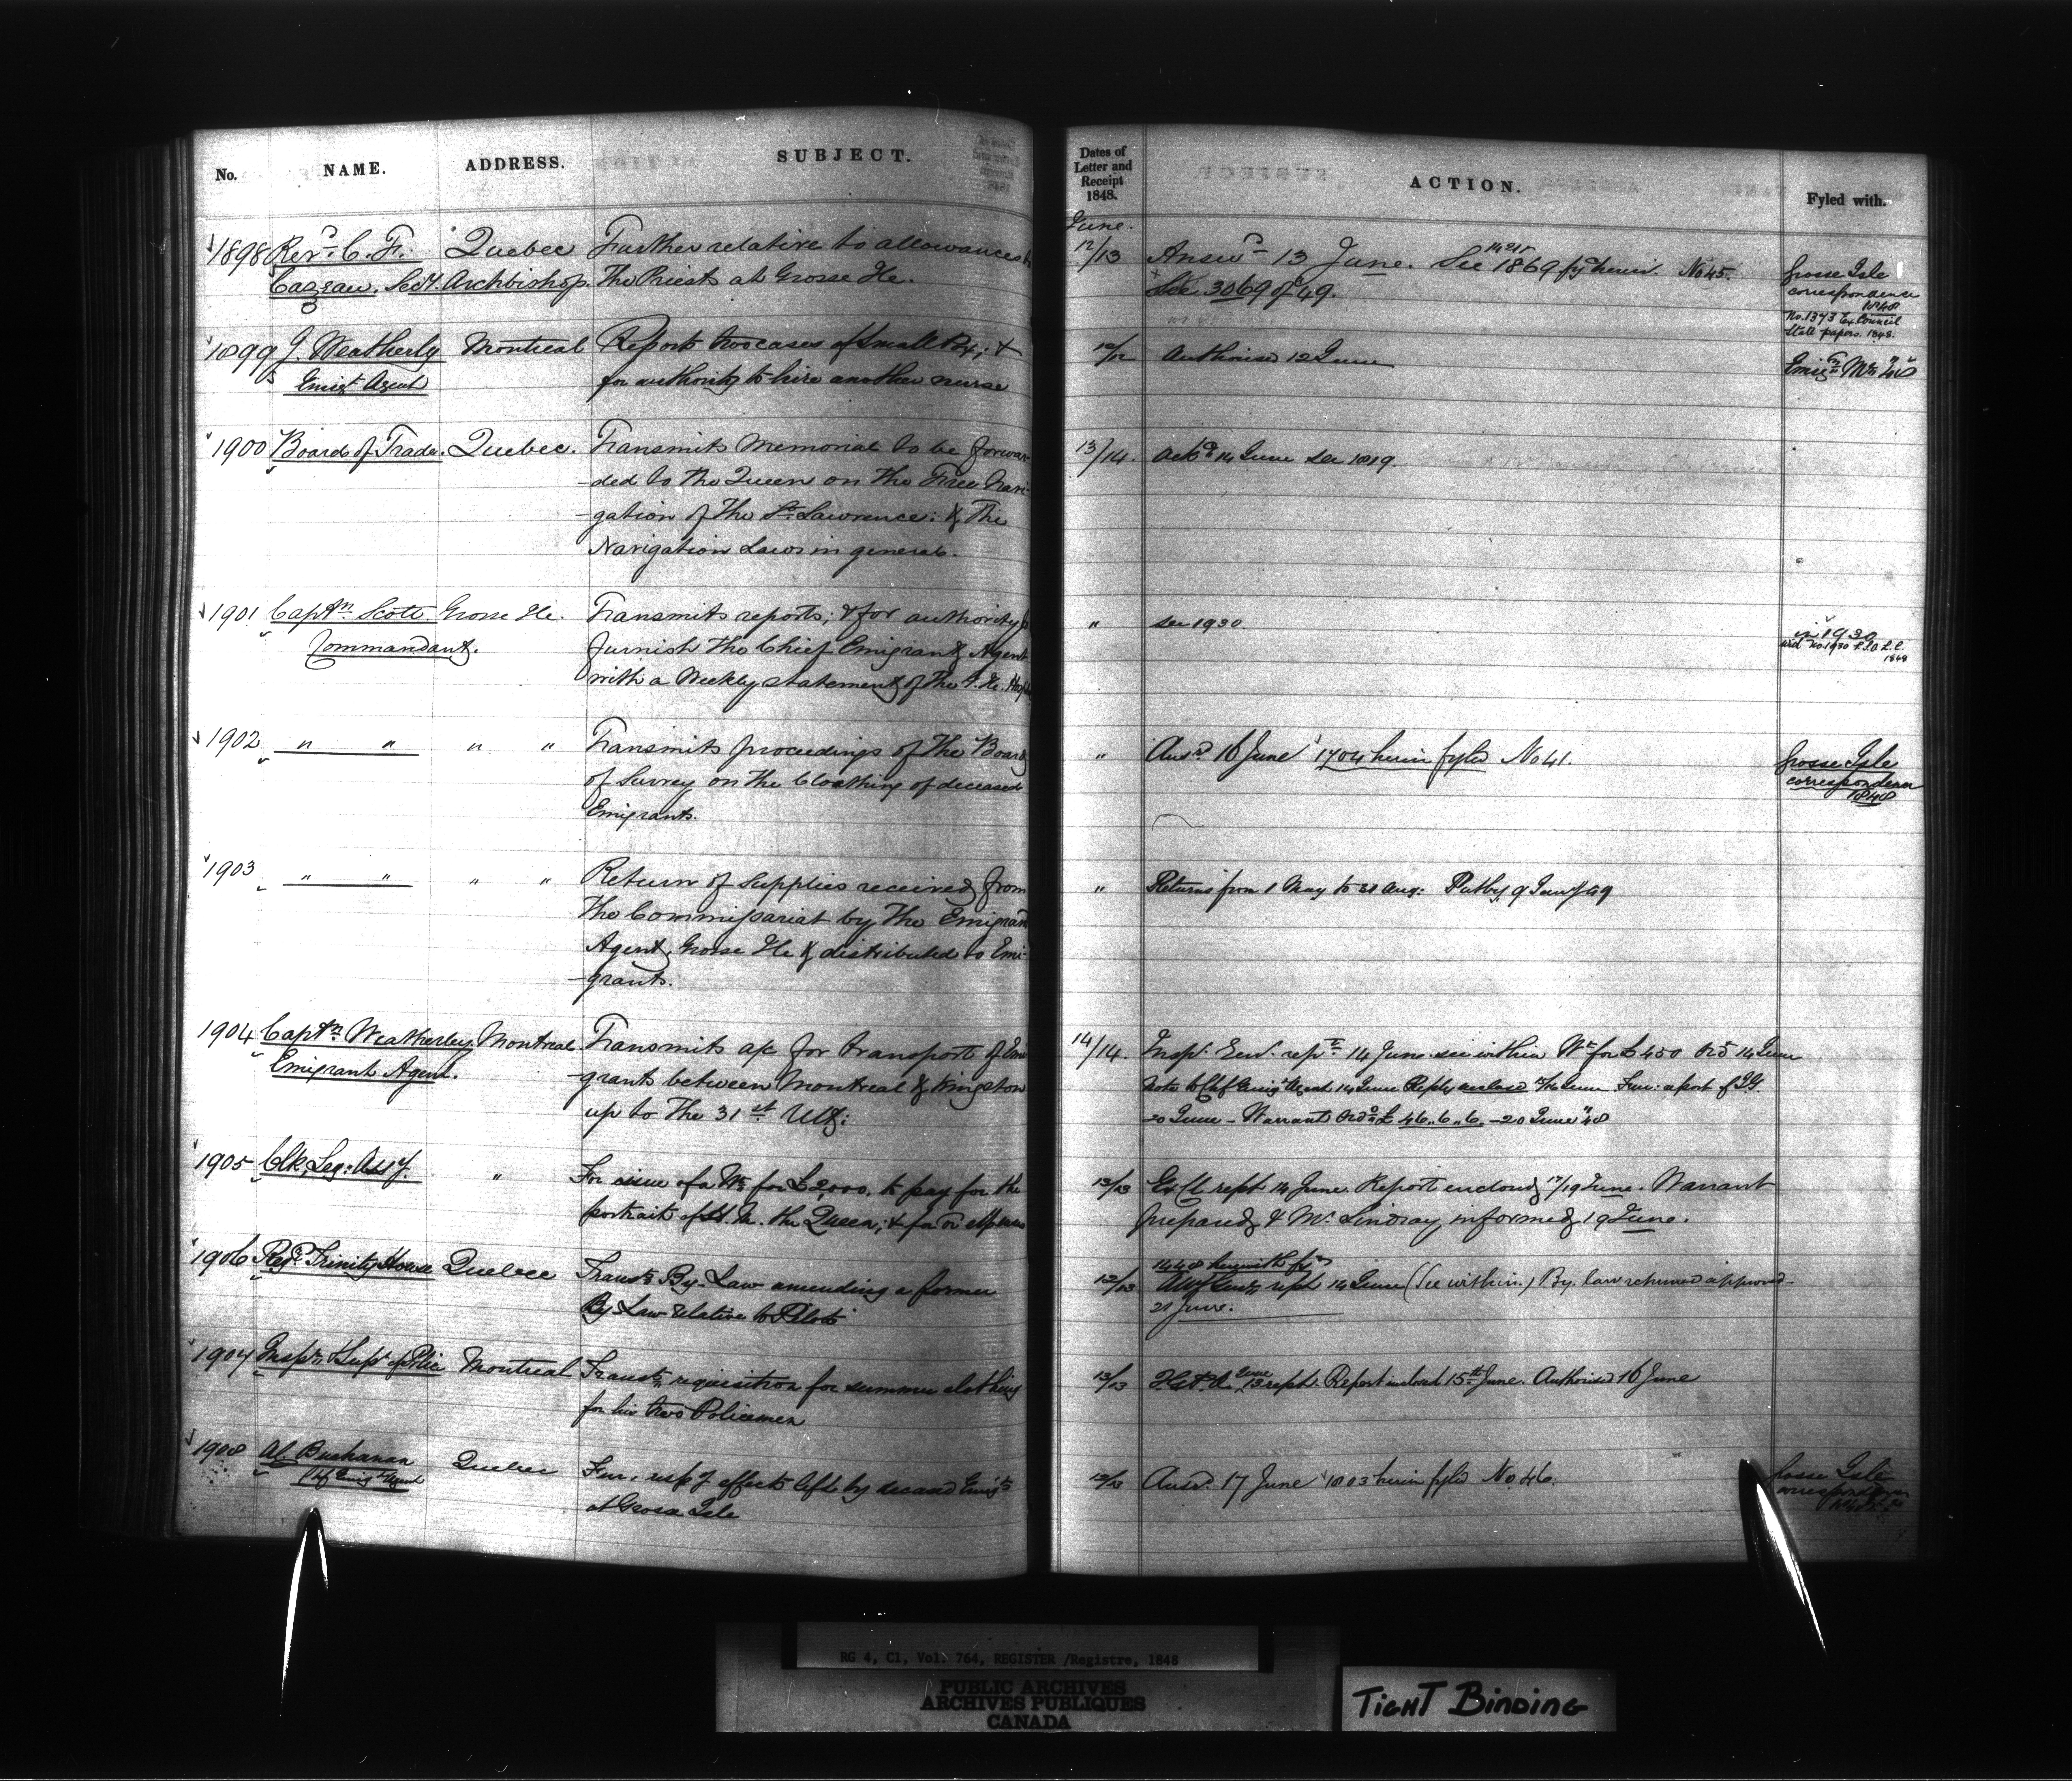 No. NAME. ADDRESS. SUBJECT.
1898 Revd. C. F. Quebec Further relative to allowances to
Cazeau, Secy. Archbishop. The Priests at Grosse Ile.
1899 J. Weatherly Montreal Reports two cases of Small Pox; &
Emigt. Agent for authority to hire another nurse
1900 Board of Trade. Quebec. Transmits Memorial to be forwar-
-ded to the Queen on the Free Navi-
-gation of The St. Lawrence: & The
Navigation Laws in general.
1901 Captn. Scott. Grosse Ile. Transmits reports; & for authority to
Commandant. furnish The Chief Emigrant Agent
with a Weekly statement of The G. Ile. Hospl
1902 " " " " Transmits proceedings of The Board
of Survey on The Cloathing of deceased
Emigrants.
1903 " " " " Return of supplies received from
The Commissariat by The Emigrant
Agent, Grosse Ile & distributed to Emi-
-grants.
1904 Captn. Weatherley Montreal Transmits a/c for transport of Emi
Emigrant Agent. -grants between Montreal & Kingston
up to The 31st Ult:
1905 Clk, Leg: Assy. " For issue of a Wt. for £2,000, to pay for the
portrait of H. M. the Queen; & for expenses
1906 Regr. Trinity House Quebec Transts. By-Law amending a former
By Law relative to Pilots
1907 Inspr. & Supt. of Police Montreal Transts. requisition for summer clothing
for his two Policemen
1908 A. C. Buchanan Quebec Fur: resp'g effects left by deceased Emigts.
Chf Emigt. Agent at Grosse Isle
Dates of
Letter and
Receipt
1848. ACTION. Fyled with.
June.
12/13 Answd. 13 June. See 1869 fyd herein. No 45. Grosse Isle
See 3069 of 49. correspondence
1848
No. 1373 Ex Council
State papers. 1848.
12/12 Authorised 12 June
13/14. Ackd. 14 June see 1819.
" see 1930. in 1930
1848
" Ansd. 16 June 1704 herein fyled No 41. Grosse Isle
correspondence
1848
" Returns from 1 May to 31 Aug: Put by 9 Jany/49
14/14. Insp. Genl. rept. 14 June see within Wt. for £450 Ord 14 June
Note to Chf Emigt Agent 14 June Reply enclosed June Fur: report of I.G.
20 June - Warrant Ord £46,,6,,6. - 20 June 48
13/13 Ex Cl rept 14 June. Report enclosed 17/19 June. Warrant
prepared & Mr. Lindsay informed 19 June.
1448 herewith fyd
12/13 Atty Genl. rept 14 June (See within.) By. law returned approved
21 June.
13/13 June 13 rept. Report inclosed 15th June. Authorised 16 June
12/13 Ansd. 17 June 1803 herein fyled No. 46. Grosse Isle
correspondence
RG 4, C1, Vol. 764, REGISTER /Registre, 1848
PUBLIC ARCHIVES
ARCHIVES PUBLIQUES
CANADA
TIGHT BINDING